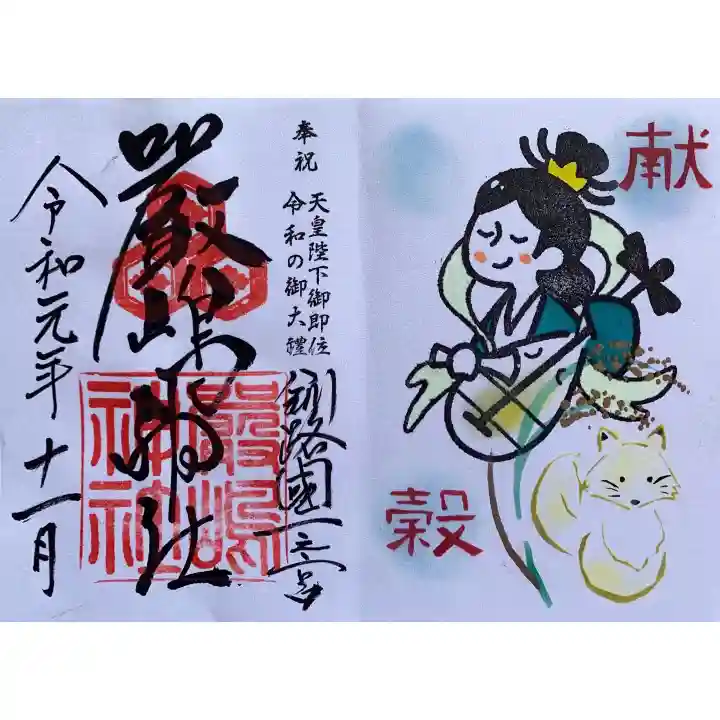 献
穀
奉祝
天皇陛下御即位
令和の御大禮
釧路國一之宮
嚴島神社
嚴嶋
神社
令和元年十一月